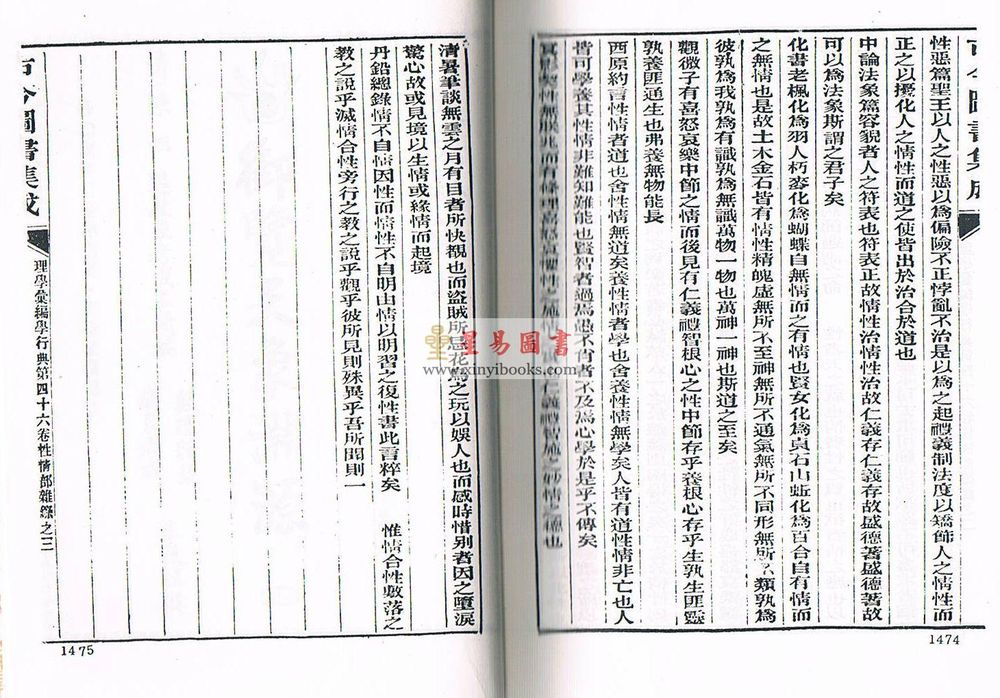 古今圖書集成
性惡篇聖王以人之性惡以為偏險不正悖亂不治是以為之起禮義制法度以矯飾人之情性而
正之以擾化人之情性而道之使皆出於治合於道也
中論法象篇容貌者人之符表也符表正故情性治情性治故仁義存仁義存故盛德著盛德著故
可以為法象斯謂之君子矣
化書老楓化為羽人朽麥化為蝴蝶自無情而之有情也賢女化為貞石山蚯化為百合自有情而
之無情也是故土木金石皆有情性精魄虛無所不至神無所不通氣無所不同形無所不類孰為
彼孰為我孰為有識孰為無識萬物一物也萬神一神也斯道之至矣
觀微子有喜怒哀樂中節之情而後見有仁義禮智根心之性中節存乎養根心存乎生孰生匪靈
孰養匪通生也弗養無物能長
西原約言性情者道也舍性情無道矣養性情者學也舍養性情無學矣人皆有道性情非亡也人
皆可學養其性情非難知難能也賢智者過焉愚不肖者不及焉心學於是乎不傳矣
1474
星易圖書
www.xinyibooks.com
清暑筆談無雲之月有目者所快覩也而盜賊所忌花鳥之玩以娛人也而感時惜別者因之墮淚
驚心故或見境以生情或緣情而起境
丹鉛總錄情不自情因性而情性不自明由情以明習之復性書此言粹矣　惟情合性敷落之
教之說乎滅情合性旁行之教之說乎觀乎彼所見則殊異乎吾所聞則一
古今圖書集成
理學彙編學行典第四十六卷性情部雜錄之三
1475